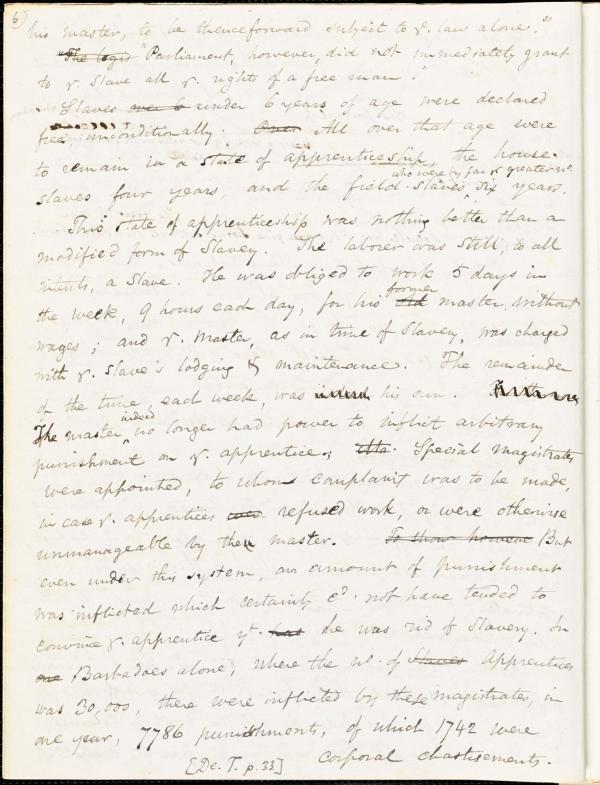 6)
his master, to be thenceforward subject to y. law alone."
"The legis "Parliament, however, did not immediately grant
to y. Slave all y. rights of a free man."
Slaves over 6 under 6 years of age were declared
free unconditionally. Over All over that age were
to remain in a state of apprenticeship, the house-
who were by far y. greater no.
slaves four years, and the field-slaves six years.
This state of apprenticeship was nothing better than a
modified form of Slavery. The laborer was still, to all
intents, a Slave. He was obliged to work 5 days in
former
the week, 9 hours each day, for his old master, without
wages; and y. master, as in time of Slavery, was charged
with y. slave's lodging & maintenance. The remainder
of the time, each week, was indeed his own.
indeed
The master no longer had power to inflict arbitrary
punishment on y. apprentice; Special magistrates
were appointed, to whom complaint was to be made,
in case y. apprentices refused work, or were otherwise
unmanageable by their master. To show however But
even under this system, an amount of punishment
was inflicted which certainly cd. not have tended to
convince y. apprentice yt. has he was rid of Slavery. In
one Barbadoes alone, where the no. of Slaves Apprentices
was 30,000, there were inflicted by these magistrates, in
one year, 7786 punishments, of which 1742 were
corporal chastisements.
[De. T. p. 33]